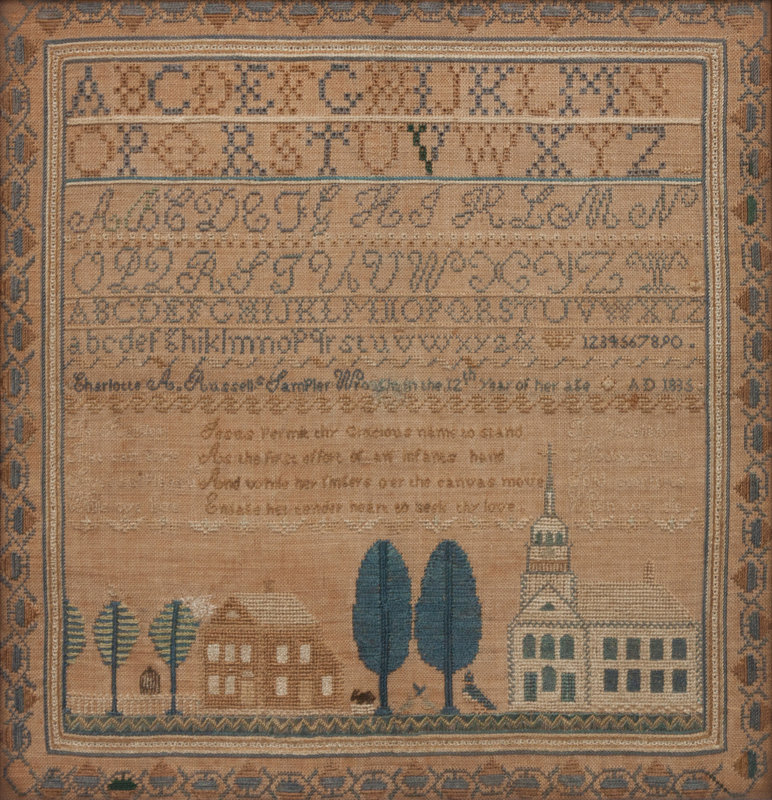 ABCDEFGHIJKLMN
OPQRSTUVWXYZ
ABCDEFGHIJKLMN
OPQRSTUVWXYZ
ABCDEFGHIJKLMNOPQRSTUVWXYZ
abcdefghiklmnopqrstuvwxyz& 1234567890.
Charlotte A. Russells Sampler Wrought in the 12th year of her age AD 1835
Jesus Permit thy Gracious name to stand
As the first effort of an infants hand
And while her fingers over the canvas move
Engage her tender heart to seek thy love